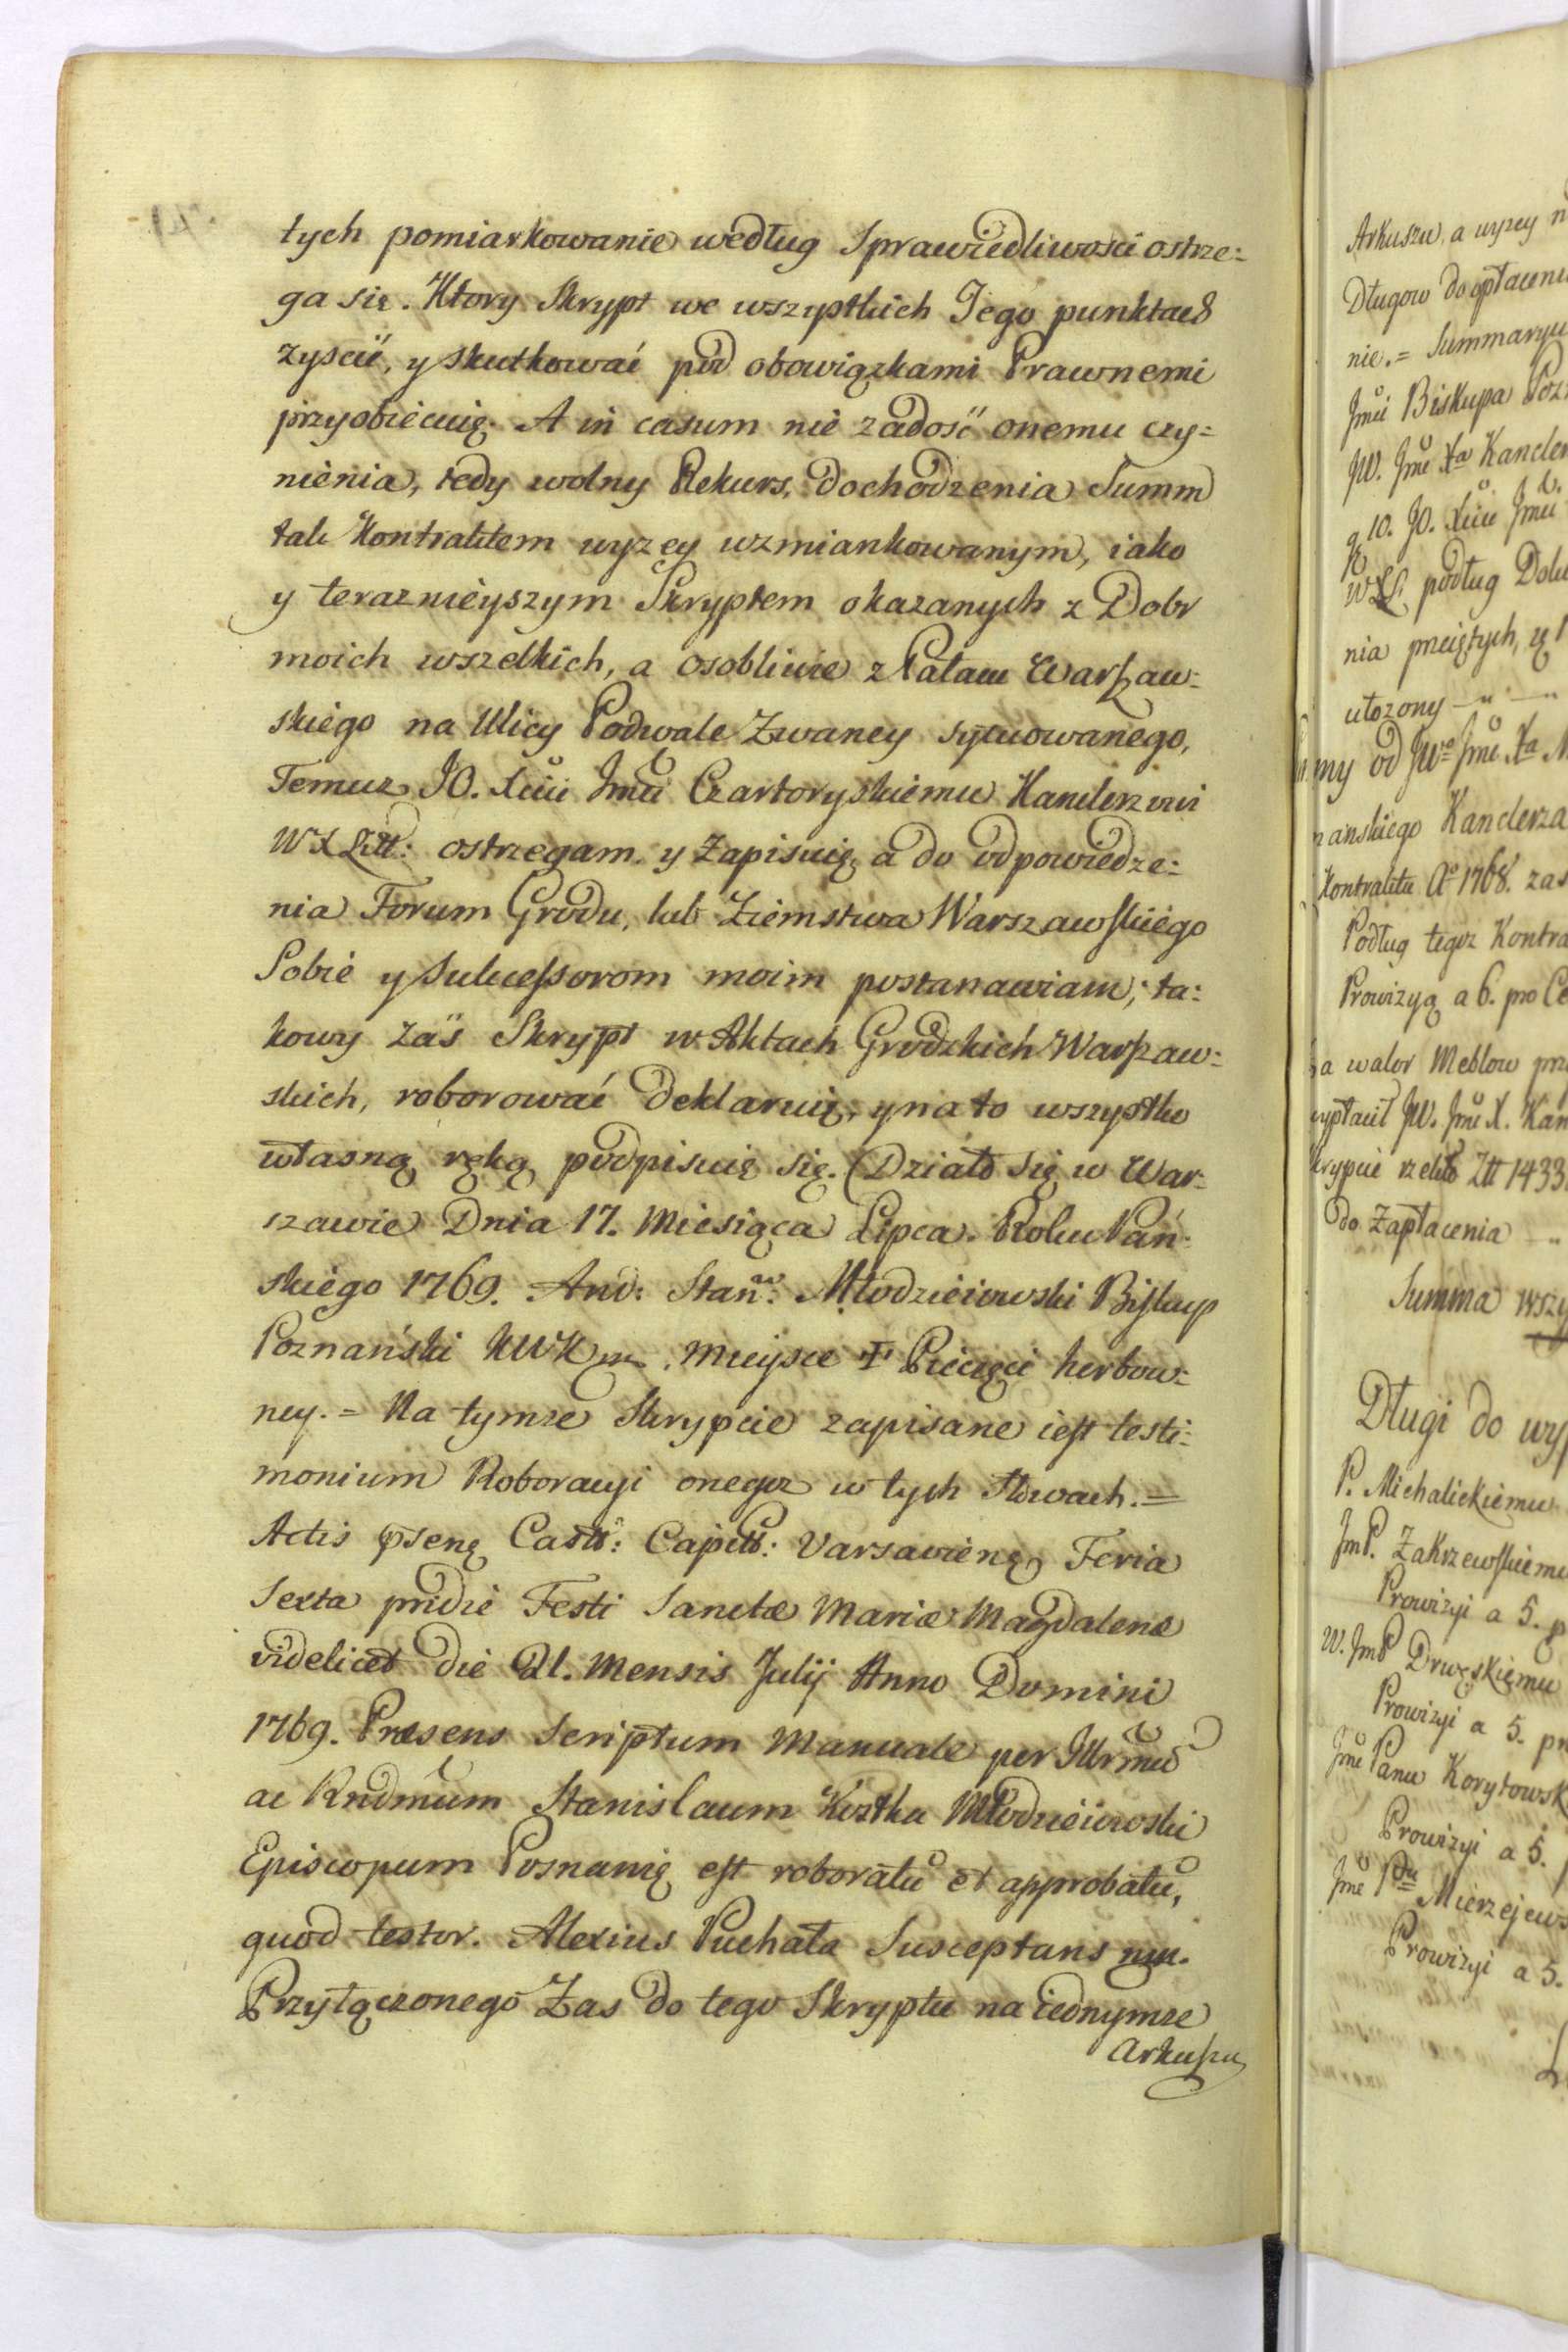 tych pomiarkowanie według Sprawiedliwosci ostrze=
ga się. Ktory Skrypt we wszystkich Jego punktach
zyscić, y skutkować pod obowiązkami Prawnemi
przyobiecuię. A in casum nie zadosć onemu czy=
nienia, tedy wolny Rekurs, dochodzenia Summ
tak Kontraktem wyzey wzmiankowanym, iako
y teraznieyszym Skryptem okazanych z Dobr
moich wszelkich, a osobliwie z Pałacu Warszaw=
skiego na Ulicy Podwale Zwaney sytuowanego,
Temuz JO. Xciu Jmci Czartoryskiemu Kanclerzowi
WXLitt: ostrzegam y Zapisuię, a do odpowiedze=
nia Forum Grodu, lub Ziemstwa Warszawskiego
Sobie y Sukcessorom moim postanawiam; ta=
kowy zaś Skrypt w Aktach Grodzkich Warszaw=
skich, roborować deklaruię, y na to wszystko
własną ręką podpisuię się. Działo się w War=
szawie Dnia 17. Miesiąca Lipca. Roku Pań=
skiego 1769. And: Stanw: Młodzieiowski Biskup
Poznański KWK mp. Mieysce + Pieczęci herbow=
ney. = Na tymze Skrypcie zapisane iest testi=
monium Roboracyi onegoz w tych Słowach. =
Actis pseng Castr: Capitt: Varsavieng Feria
Sexta pridie Festi Sanctæ Mariæ Magdalenæ
videlicet die 21. Mensis Julij Anno Domini
1769. Præsens Scriptum Manuale per Illrmu
ac Rndmum Stanislaum Kostka Młodzieiowski
Episcopum Posnanię est roboratu et approbatu,
quod testor. Alexius Puchała Susceptans mp.
Przyłączonego Zas do tego Skryptu na iednymze
Arkuszu
Arkuszu, a wyzey
Długow do opłaceni
nie. = Summaryu
Jmci Biskupa Poz
JW. Jmc Xa Kancler
JO. Xciu Jmci
podług
nia
ułozony
my od JWo Jmc Xa M
nanskiego Kanclerza
Kontraktu Ao 1768. zas
Podług tegoz Kontra
Prowizyą a 6. pro Ce
a walor Meblow prz
wypłacił JW. Jmc X. Kan
krypcie rzekło Ztt 1433
do Zapłacenia
Summa wszy
Długi do wyp
P. Michalickiemu
JmP. Zakrzewskiemu
Prowizyi a 5. p
W. JmP Drwęskiemu
Prowizyi a 5. pr
Jmc Panu Korytowsk
Prowizyi a 5.
Jmc Pnu Mierzejews
Prowizyi a 5.